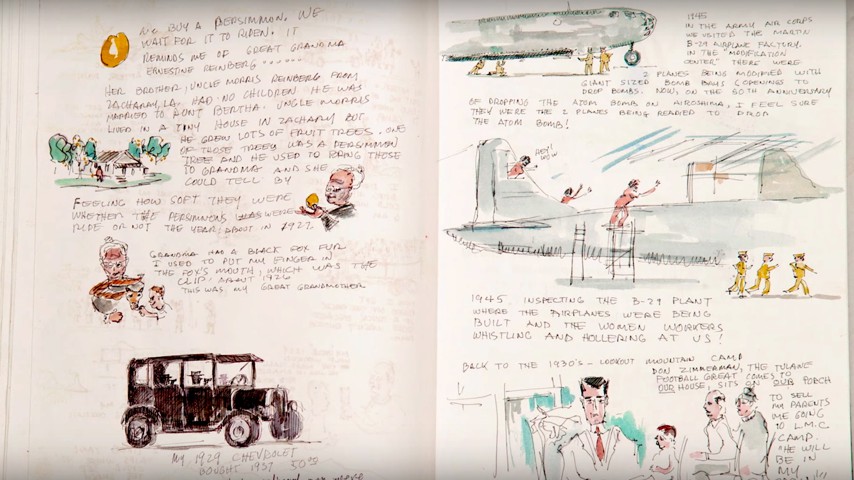 WE BUY A PERSIMMON. WE
WAIT FOR IT TO RIPEN. IT
REMINDS ME OF GREAT GRANDMA
ERNESTINE REINBERG
HER BROTHER, UNCLE MORRIS REINBERG FROM
ZACHARY, LA. HAD NO CHILDREN. HE WAS
MARRIED TO AUNT BERTHA. UNCLE MORRIS
LIVED IN A TINY HOUSE IN ZACHARY BUT
HE GREW LOTS OF FRUIT TREES. ONE
OF THOSE TREES WAS A PERSIMMON
TREE AND HE USED TO BRING THESE
TO GRANDMA AND SHE
COULD TELL BY
FEELING HOW SOFT THEY WERE
WHETHER THE PERSIMMONS WERE
RIPE OR NOT THE YEAR, ABOUT IN 1927
GRANDMA HAD A BLACK FOX FUR
I USED TO PUT MY FINGER IN
THE FOX'S MOUTH, WHICH WAS THE
CLIP. ABOUT 1926
THIS WAS MY GREAT GRANDMOTHER
MY 1929 CHEVROLET
BOUGHT 1937 50.00
1945
IN THE ARMY AIR CORPS
WE VISITED THE MARTIN
B-29 AIRPLANE FACTORY.
IN THE "MODIFICATION
CENTER" THERE WERE
2 PLANES BEING MODIFIED WITH
GIANT SIZED BOMB BAYS (OPENINGS TO
DROP BOMBS. NOW, ON THE 60TH ANNIVERSARY
OF DROPPING THE ATOM BOMB ON HIROSHIMA, I FEEL SURE
THEY WERE THE 2 PLANES BEING READIED TO DROP
THE ATOM BOMB!
HEY!
WOW
1945. INSPECTING THE B-29 PLANT
WHERE THE AIRPLANES WERE BEING
BUILT AND THE WOMEN WORKERS
WHISTLING AND HOLLERING AT US!
BACK TO THE 1930'S - LOOKOUT MOUNTAIN CAMP
DON ZIMMERMAN, THE TULANE
FOOTBALL GREAT COMES TO
OUR HOUSE, SITS ON OUR PORCH
TO SELL
MY PARENTS
ME GOING
TO L.M.C.
CAMP.
"HE WILL
BE IN
MY